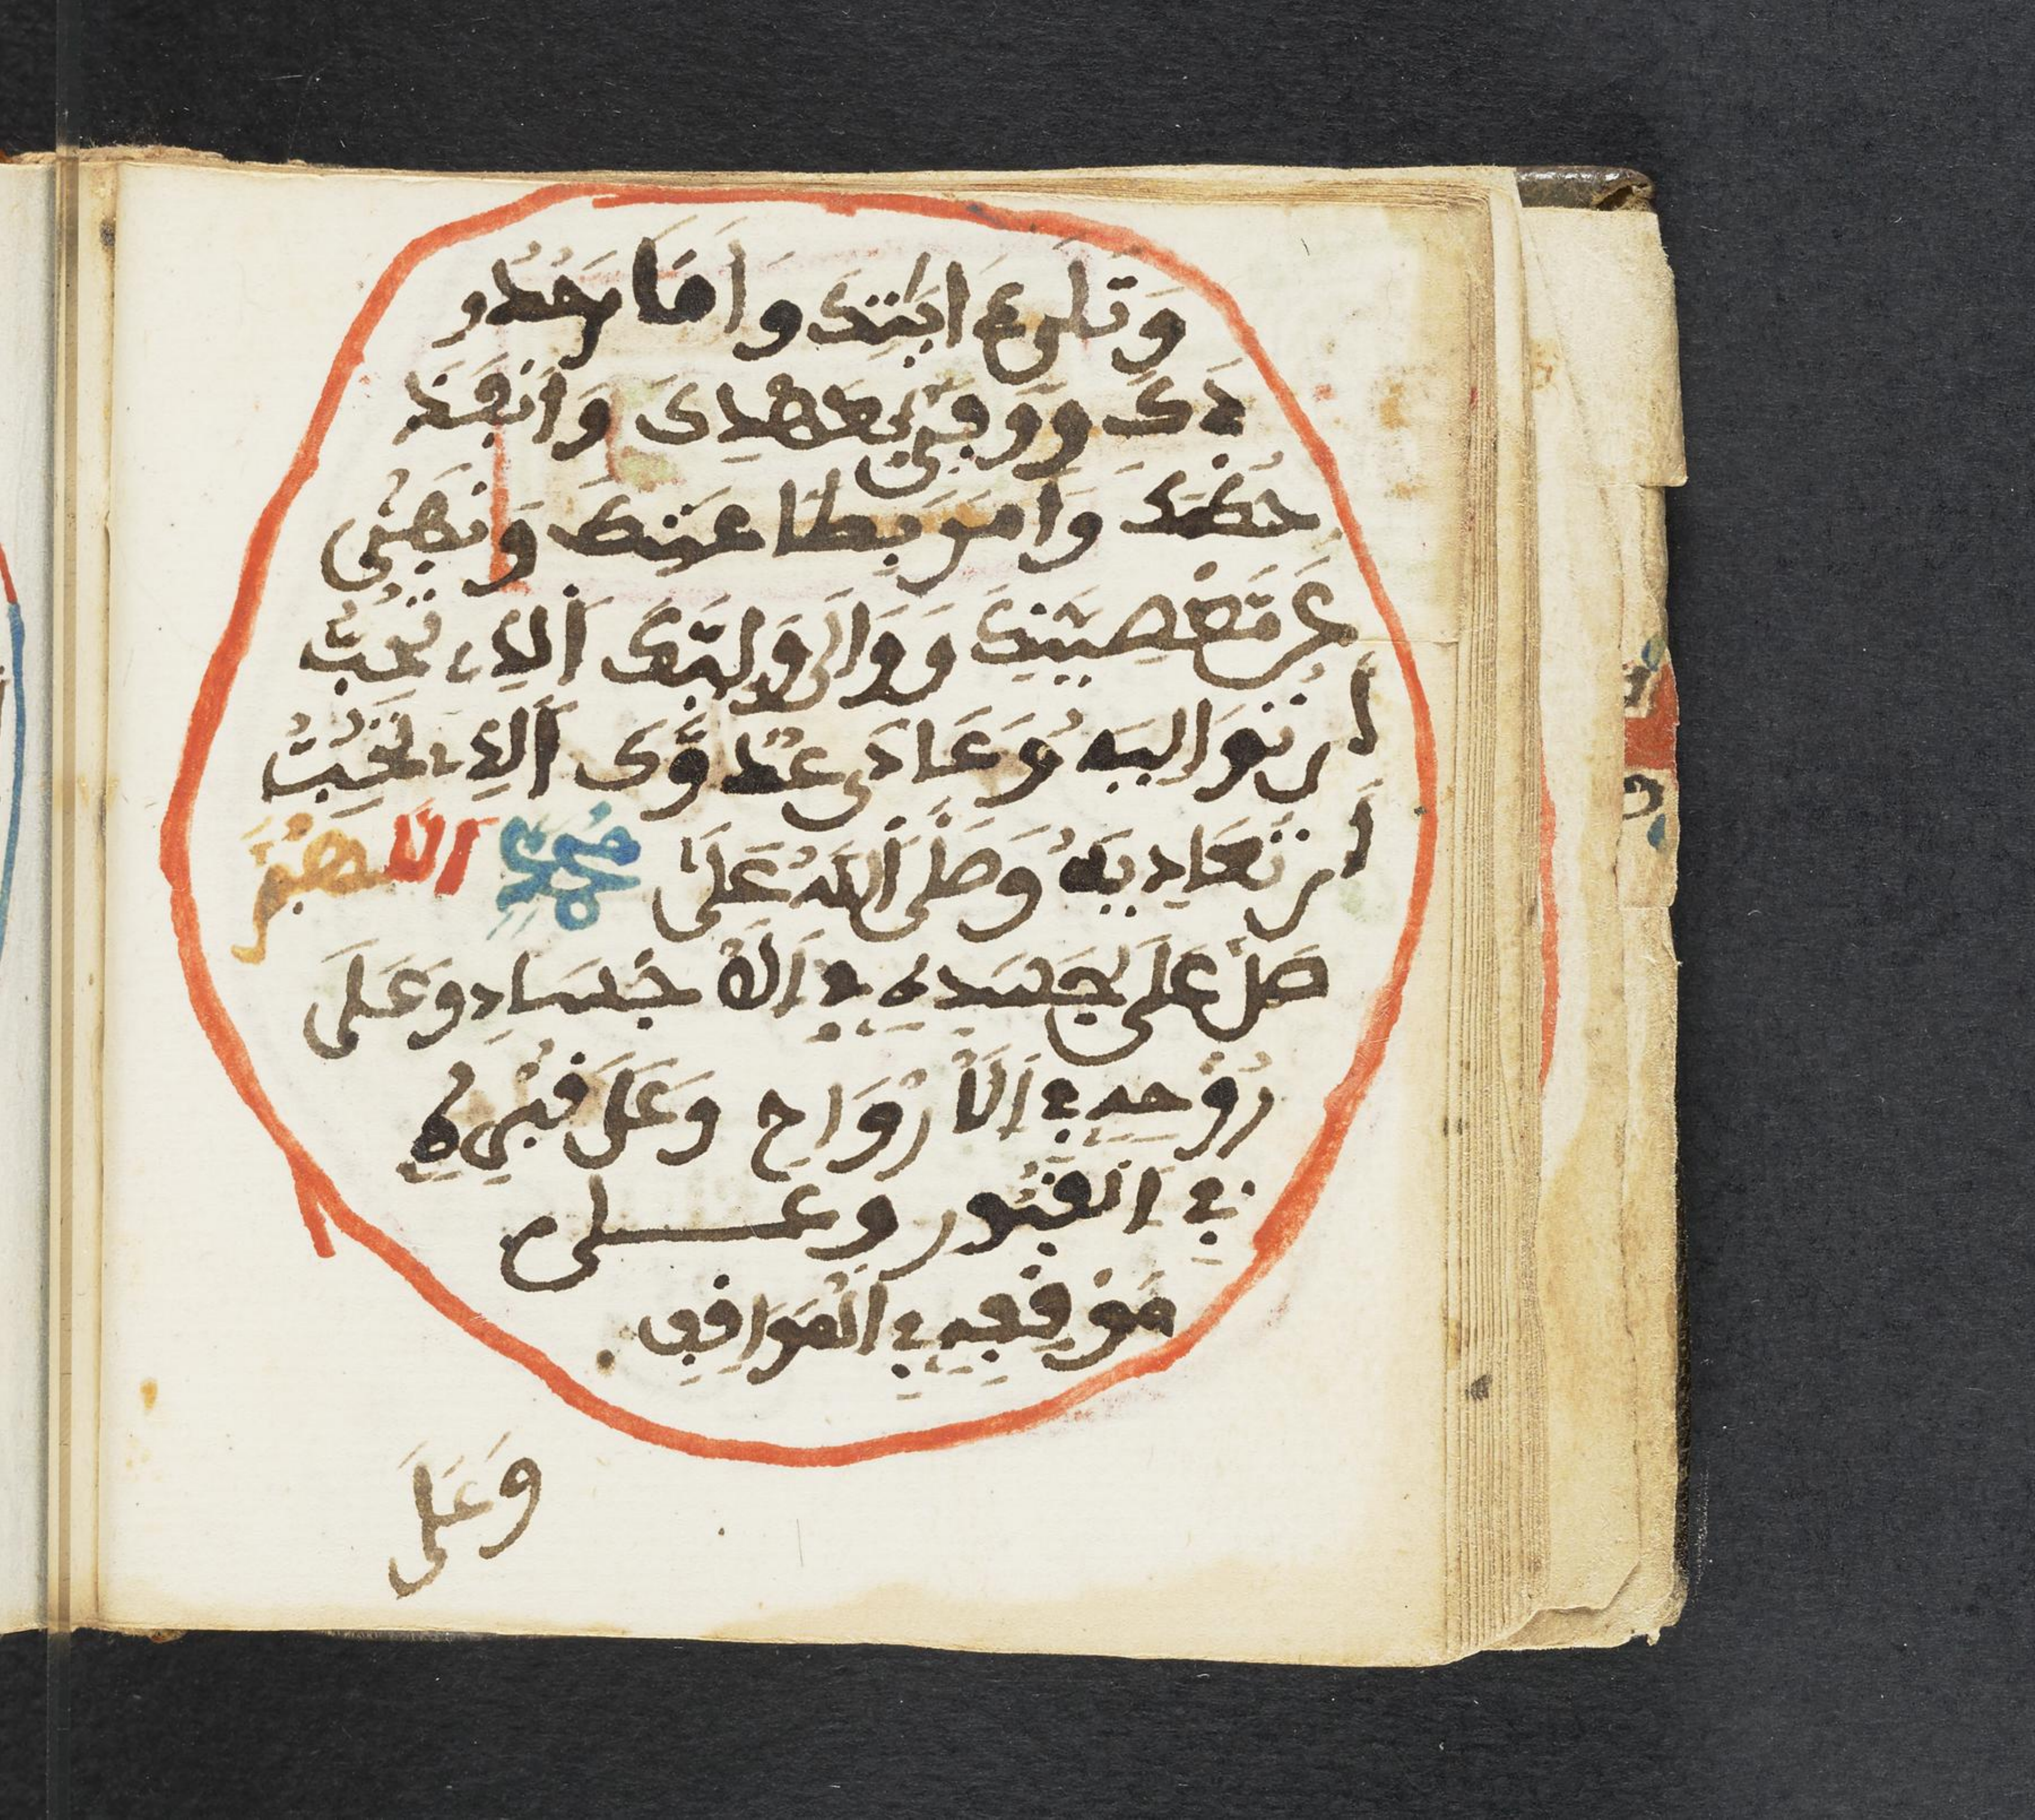 وَتَلَى ءَايَٰتِكَ وَأَقَامَ حُدُو
دَكَ وَوَفَّى بِعَهْدِكَ وَأَنْفَذَ
حُكْمَكَ وَأَمَرَ بِطَاعَتِكَ وَنَهَىٰ
عَن مَّعْصِيَتِكَ وَوَالَى وَلِيَّكَ ٱلَّذِي تُحِبُّ
أَن تُوَالِيَهُ وَعَادَى عَدُوَّكَ ٱلَّذِي تُحِبُّ
أَن تُعَادِيَهُ وَصَلَّى ٱللَّهُ عَلَىٰ مُحَمَّدٍ اللَّهُمَّ
صَلِّ عَلَى جَسَدِهِ فِي ٱلْأَجْسَادِ وَعَلَى
رُوحِهِ فِي ٱلْأَرْوَاحِ وَعَلَى قَبْرِهِ
فِي ٱلْقُبُورِ وَعَلَى
مَوْقِفِهِ فِي ٱلْمَوَاقِفِ
وَعَلَى